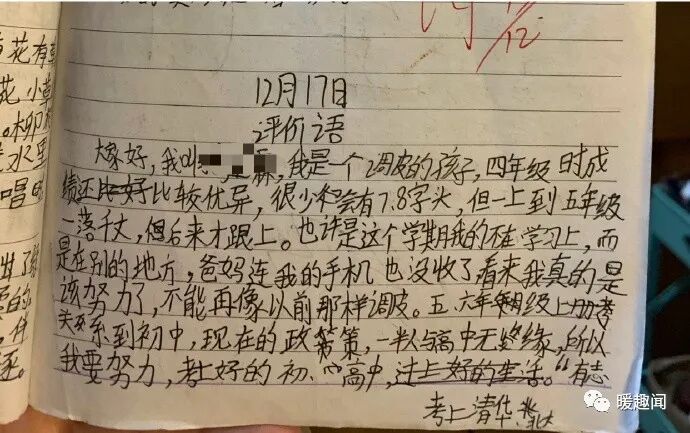 12
12月17日
评价语
大家好,我叫 霖,我是一个调皮的孩子,四年级时成
绩还比较优异,很少会有7.8字头,但一上到五年级
一落千丈,但后来才跟上。也许是这个学期我的不在学习上,而
是在别的地方,爸妈连我的手机也没收了看来我真的是
该努力了,不能再像以前那样调皮。五.六年级上册考
关系到初中,现在的政策,一半人与高中无缘,所以
我要努力,考上好的初、高中,过上好的生活。“有志
考上清华北大
花有
花小草
。柳
水里
唱
暖趣闻